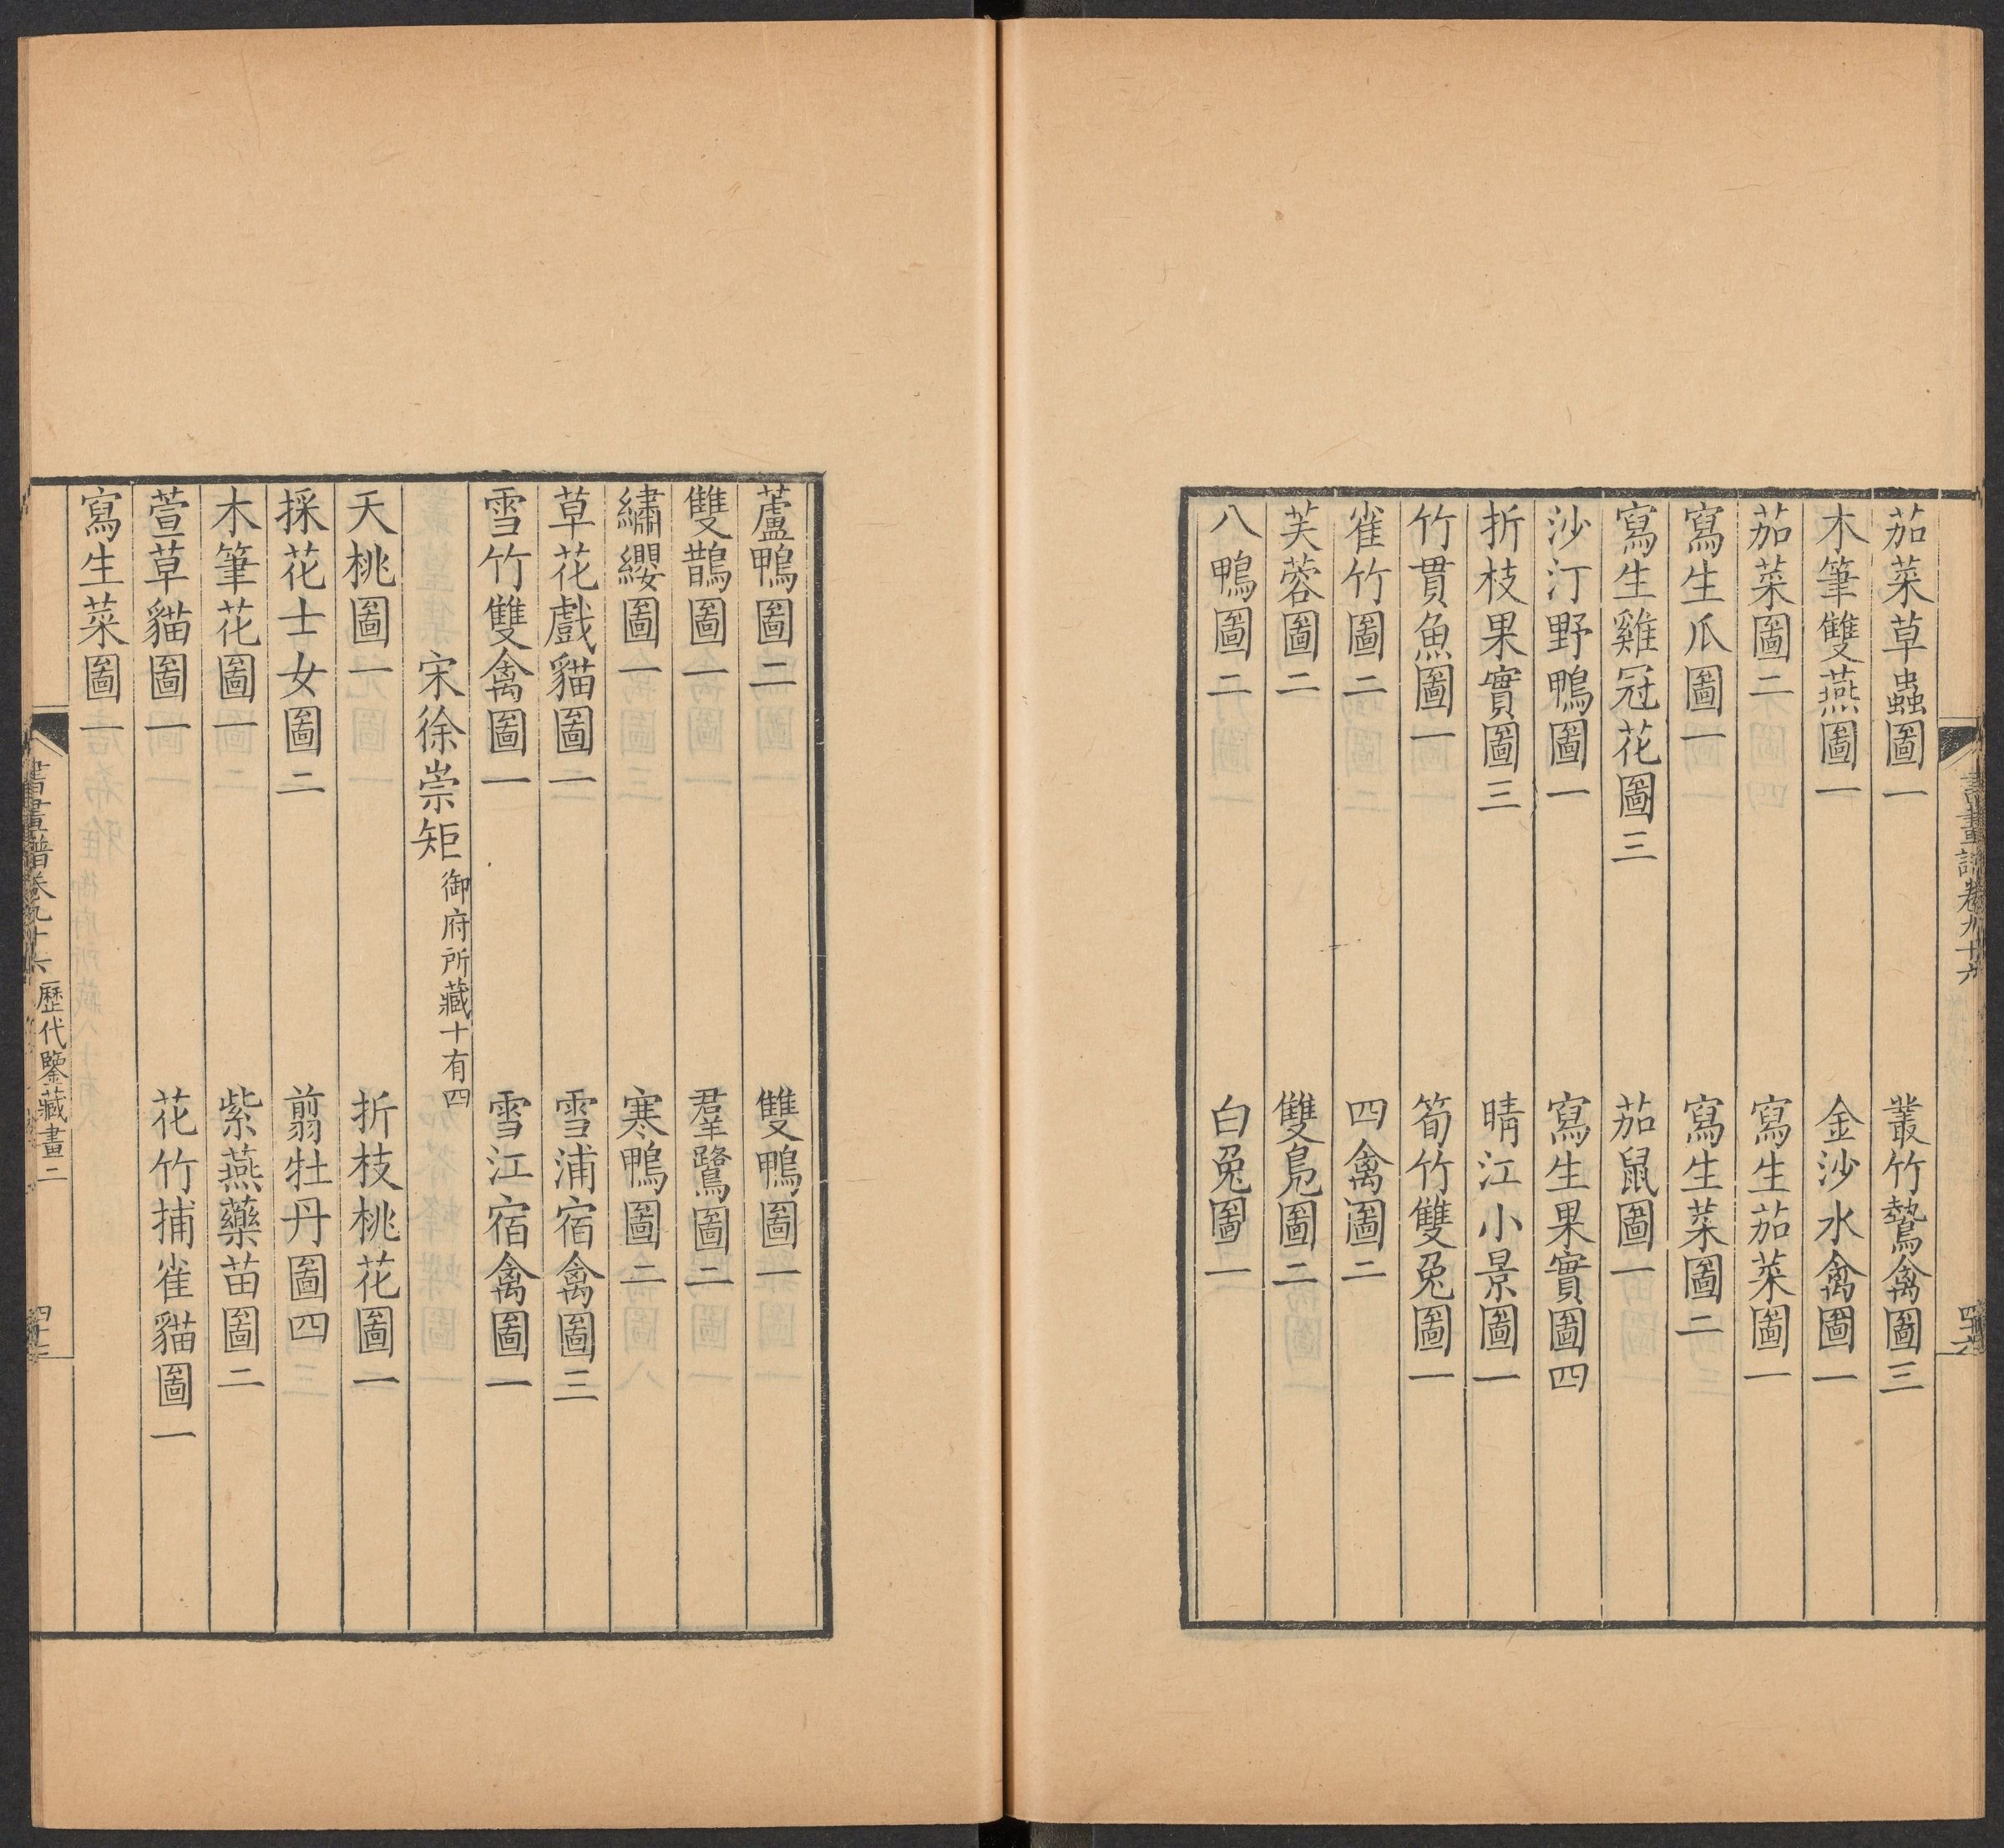 茄菜草蟲圖一　叢竹鷙禽圖三
木筆雙燕圖一　金沙水禽圖一
茄菜圖二　寫生茄菜圖一
寫生瓜圖一　寫生菜圖二
寫生雞冠花圖三　茄鼠圖一
沙汀野鴨圖一　寫生果實圖四
折枝果實圖三　晴江小景圖一
竹貫魚圖一　筍竹雙兔圖一
雀竹圖二　四禽圖二
芙蓉圖二　雙鳧圖二
八鴨圖二　白兔圖一
蘆鴨圖二　雙鴨圖一
雙鵲圖一　羣鷺圖二
繡纓圖一　寒鴨圖二
草花戲貓圖一　雪浦宿禽圖三
雪竹雙禽圖一　雪江宿禽圖一
宋徐崇矩御府所藏十有四
夭桃圖一　折枝桃花圖一
採花士女圖二　翦牡丹圖四
木筆花圖一　紫燕藥苗圖二
萱草貓圖一　花竹捕雀貓圖一
寫生菜圖一
書畫譜卷九十六　歷代鑒藏畫二